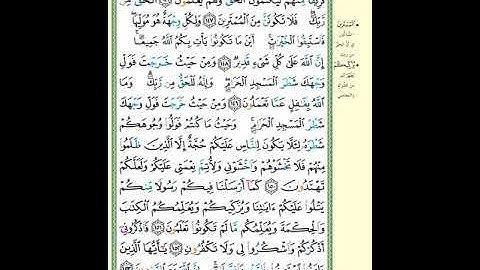 فَرِيقًا مِّنْهُمْ لَيَكْتُمُونَ ٱلْحَقَّ وَهُمْ يَعْلَمُونَ
رَّبِّكَ فَلَا تَكُونَنَّ مِنَ ٱلْمُمْتَرِينَ ١٤٧ وَلِكُلٍّ وِجْهَةٌ هُوَ مُوَلِّيهَا
فَٱسْتَبِقُوا۟ ٱلْخَيْرَٰتِ أَيْنَ مَا تَكُونُوا۟ يَأْتِ بِكُمُ ٱللَّهُ جَمِيعًا
إِنَّ ٱللَّهَ عَلَىٰ كُلِّ شَىْءٍ قَدِيرٌ ١٤٨ وَمِنْ حَيْثُ خَرَجْتَ فَوَلِّ
وَجْهَكَ شَطْرَ ٱلْمَسْجِدِ ٱلْحَرَامِ وَإِنَّهُۥ لَلْحَقُّ مِن رَّبِّكَ وَمَا
ٱللَّهُ بِغَٰفِلٍ عَمَّا تَعْمَلُونَ ١٤٩ وَمِنْ حَيْثُ خَرَجْتَ فَوَلِّ وَجْهَكَ
شَطْرَ ٱلْمَسْجِدِ ٱلْحَرَامِ وَحَيْثُ مَا كُنتُمْ فَوَلُّوا۟ وُجُوهَكُمْ
شَطْرَهُۥ لِئَلَّا يَكُونَ لِلنَّاسِ عَلَيْكُمْ حُجَّةٌ إِلَّا ٱلَّذِينَ ظَلَمُوا۟
مِنْهُمْ فَلَا تَخْشَوْهُمْ وَٱخْشَوْنِى وَلِأُتِمَّ نِعْمَتِى عَلَيْكُمْ وَلَعَلَّكُمْ
تَهْتَدُونَ ١٥٠ كَمَآ أَرْسَلْنَا فِيكُمْ رَسُولًا مِّنكُمْ
يَتْلُوا۟ عَلَيْكُمْ ءَايَٰتِنَا وَيُزَكِّيكُمْ وَيُعَلِّمُكُمُ ٱلْكِتَٰبَ
وَٱلْحِكْمَةَ وَيُعَلِّمُكُم مَّا لَمْ تَكُونُوا۟ تَعْلَمُونَ ١٥١ فَٱذْكُرُونِىٓ
أَذْكُرْكُمْ وَٱشْكُرُوا۟ لِى وَلَا تَكْفُرُونِ ١٥٢ يَٰٓأَيُّهَا ٱلَّذِينَ